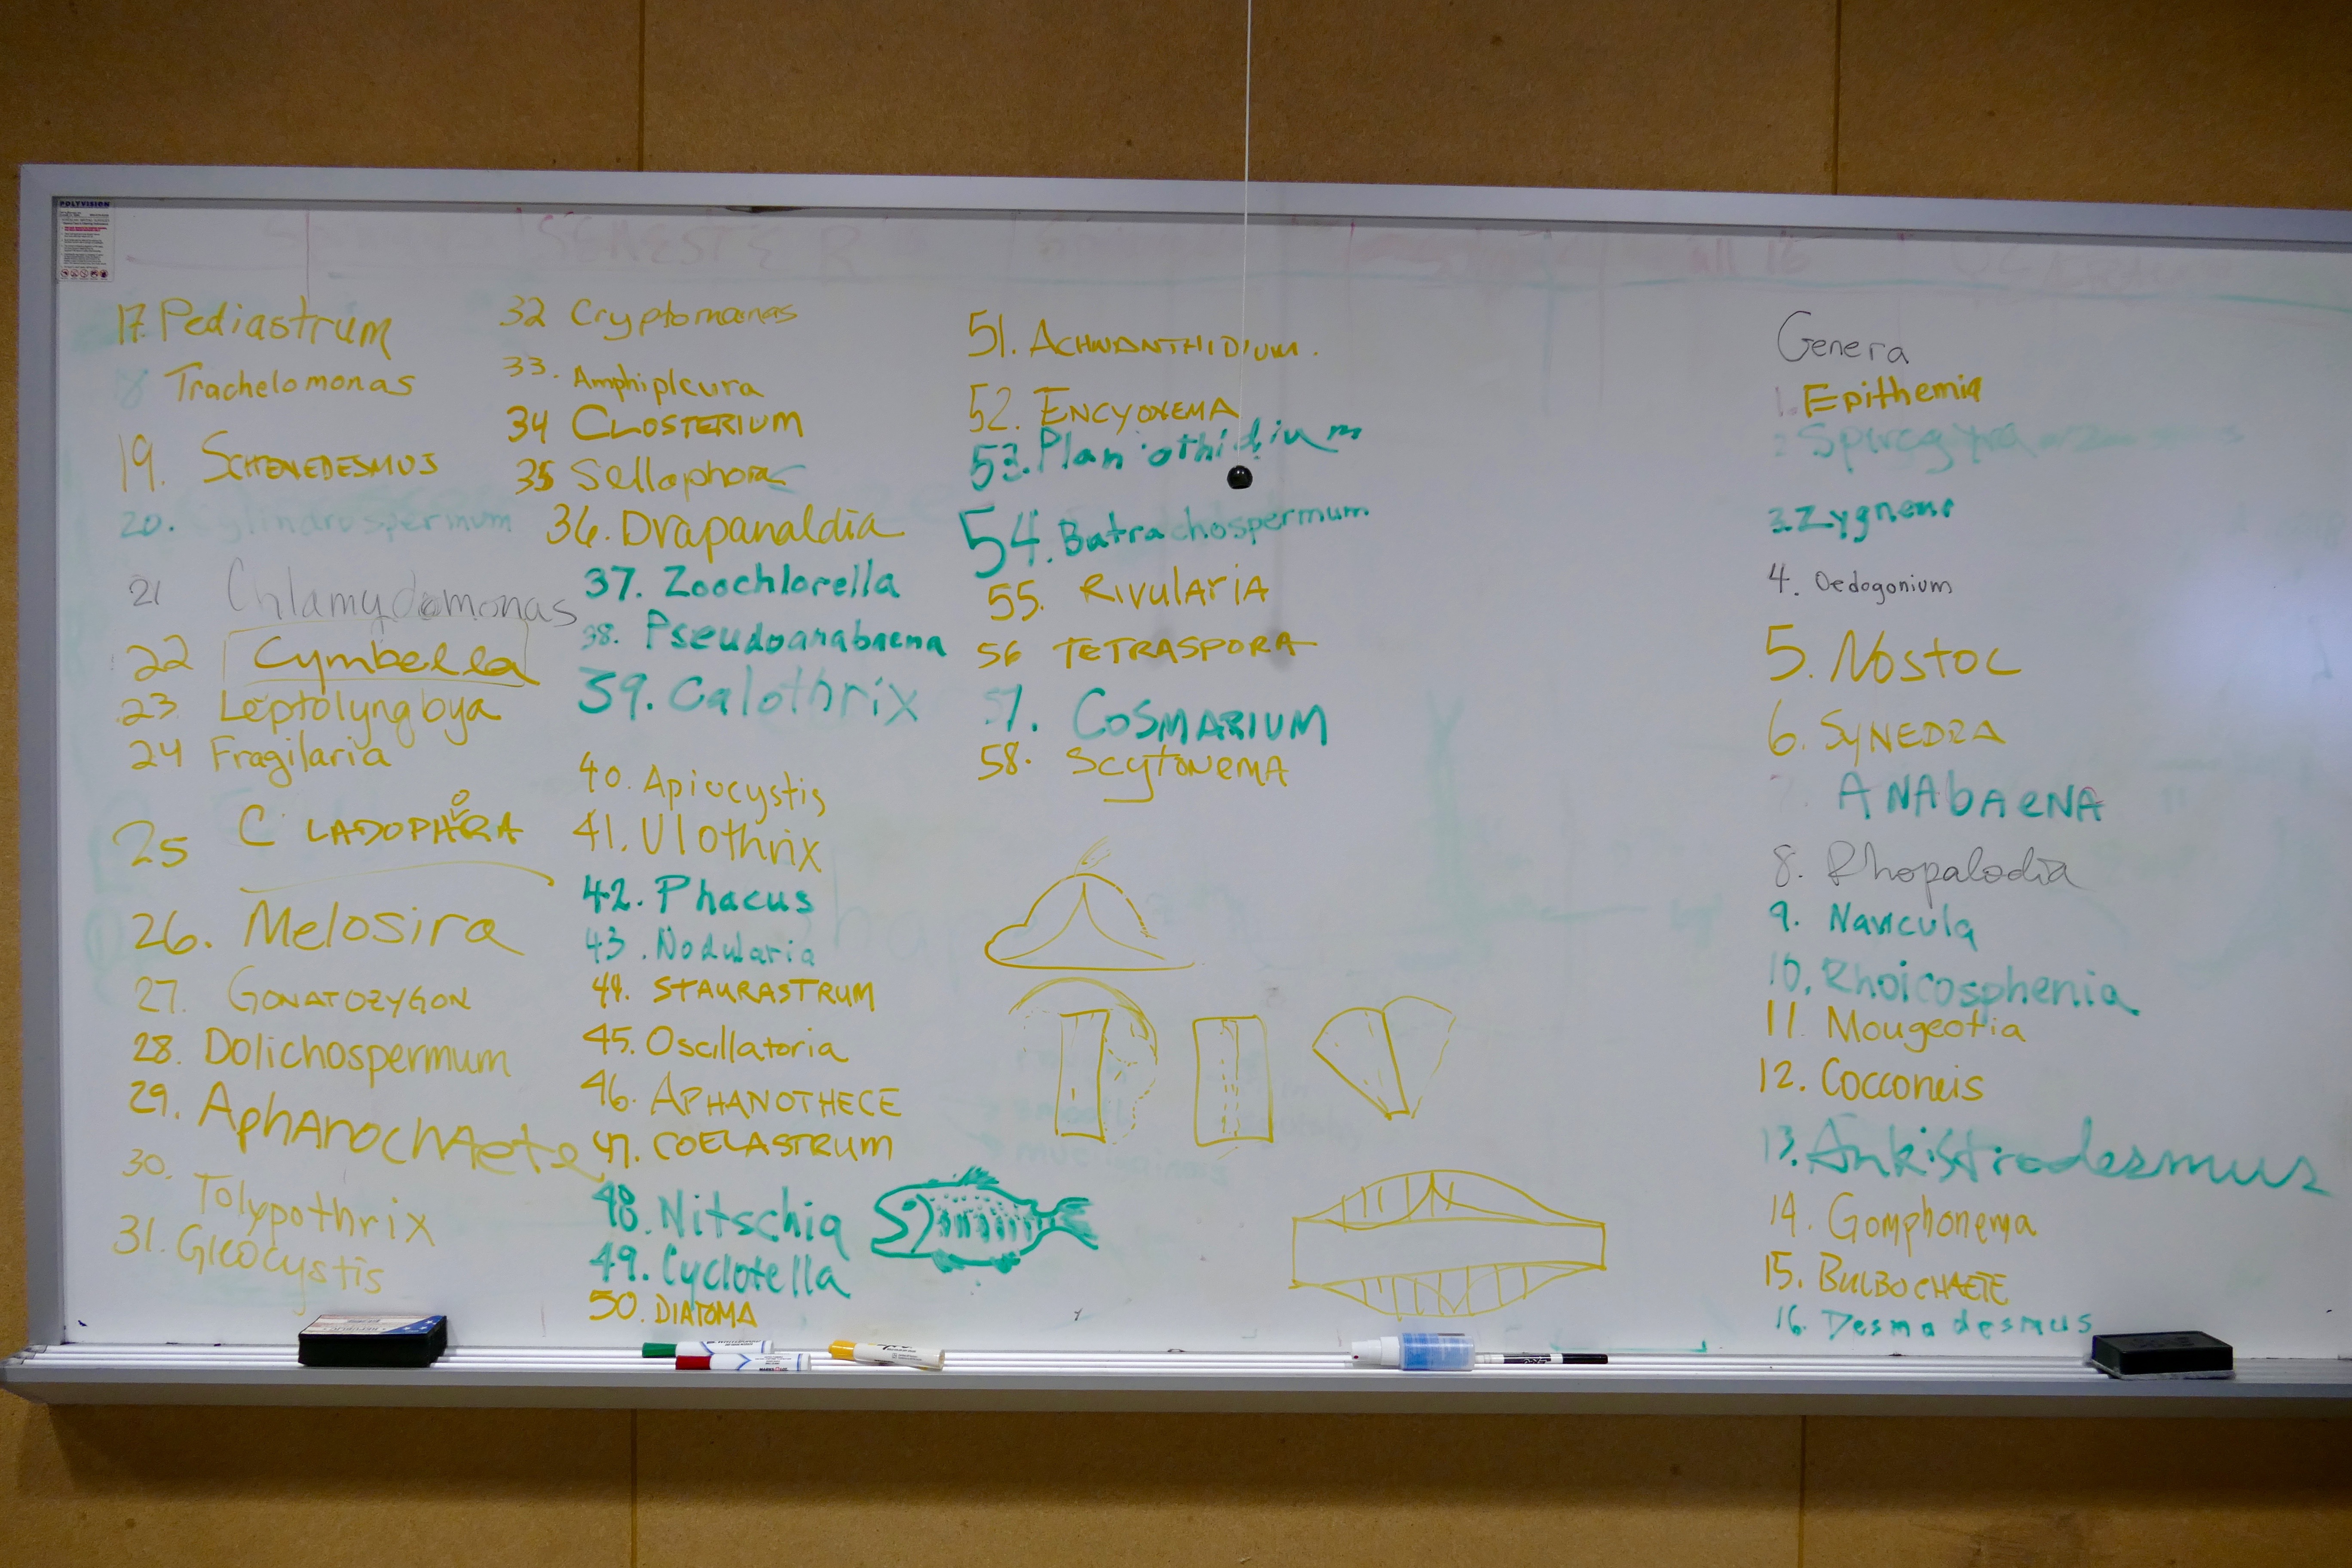 POLYVISION
SEMESTER
Genera
1. Epithemia
2 Spirogyra
3. Zygnema
4. Oedogonium
5. Nostoc
6. SYNEDRA
7. ANAbAeNA
8. Rhopalodia
9. Navicula
10. Rhoicosphenia
11. Mougeotia
12. Cocconeis
13. Ankistrodesmus
14. Gomphonema
15. BULBOCHAETE
16. Desmodesmus
17. Pediastrum
18 Trachelomonas
19. SCHENEDESMUS
20. Cylindrospermum
21 Chlamydomonas
22 Cymbella
23 Leptolyngbya
24 Fragilaria
25 CLADOPHORA
26. Melosira
27. GONATOZYGON
28. Dolichospermum
29. AphANOchAete
30. Tolypothrix
31. Gleocystis
32 Cryptomonas
33. Amphipleura
34 CLOSTERIUM
35 Sellophora
36. Drapanaldia
37. Zoochlorella
38. Pseudoanabaena
39. Calothrix
40. Apiocystis
41. Ulothrix
42. Phacus
43. Nodularia
44. STAURASTRUM
45. Oscillatoria
46. APHANOTHECE
47. COELASTRUM
48. Nitschia
49. Cyclotella
50. DIATOMA
51. ACHNANTHIDIUM.
52. ENCYONEMA
53. Planothidium
54. Batrachospermum
55. RIVULARIA
56 TETRASPORA
57. COSMARIUM
58. SCYTONEMA